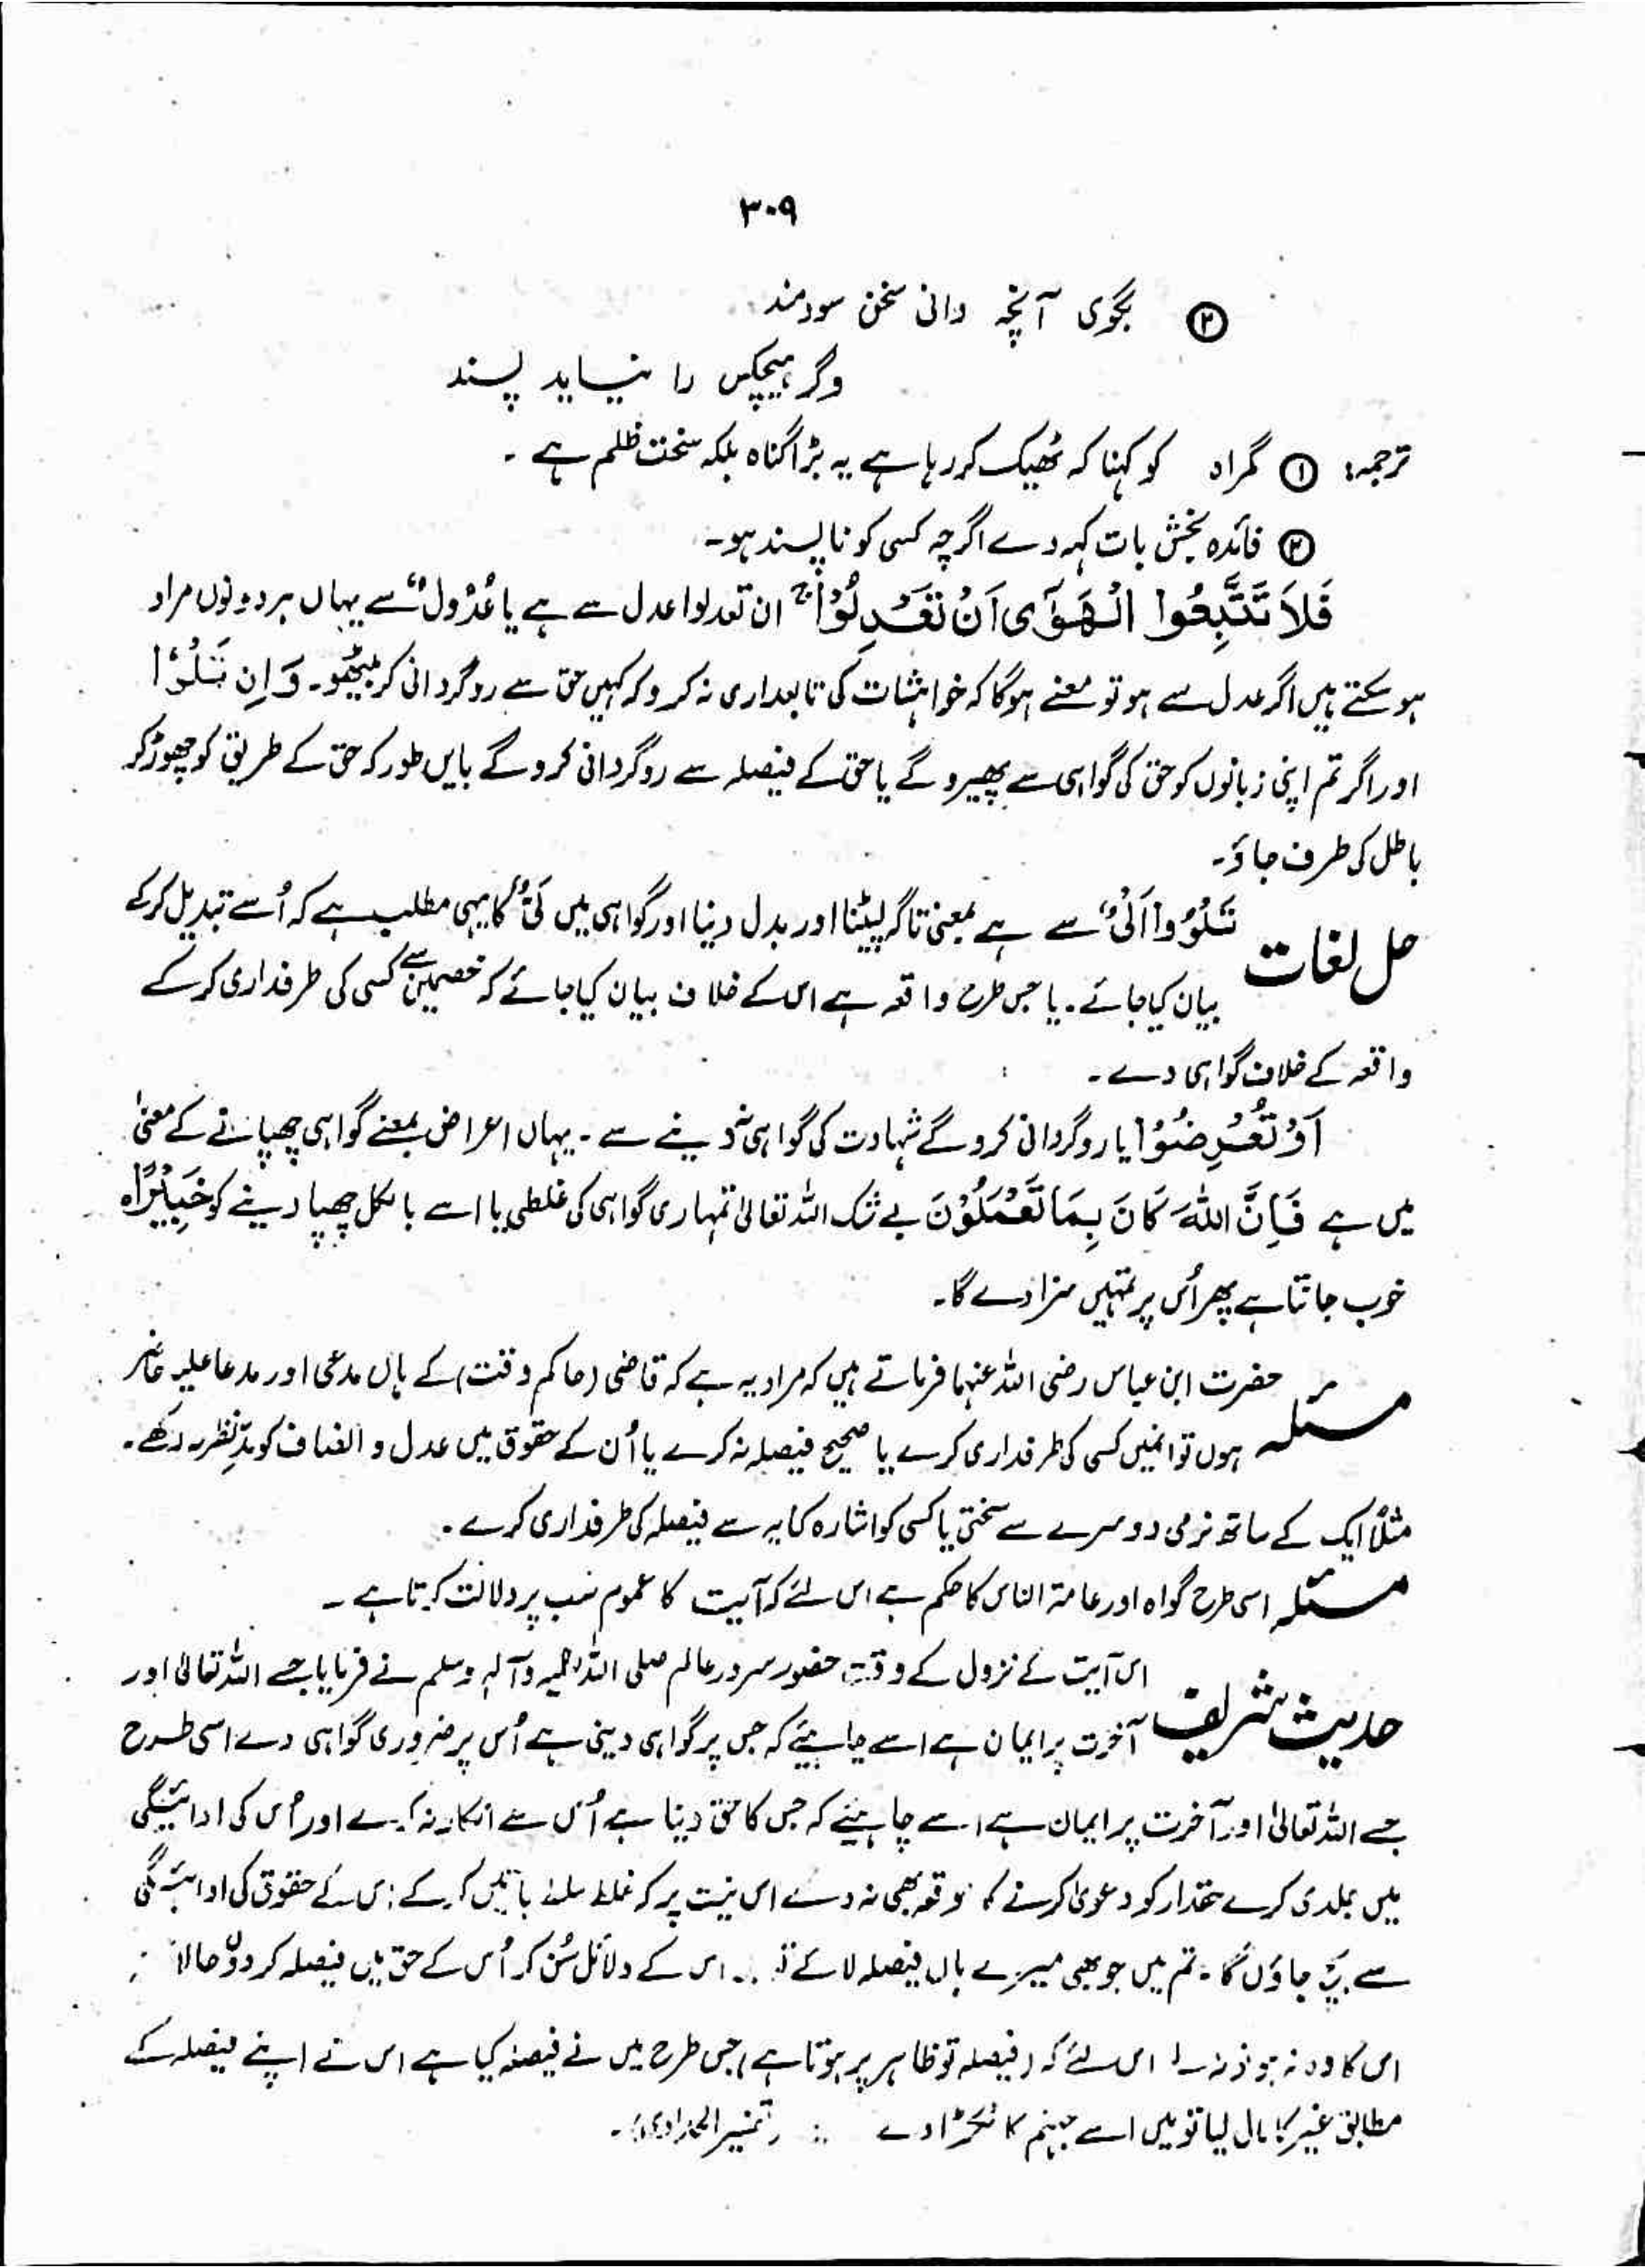 ۳۰۹
② بگوی آنچہ دانی سخن سودمند
وگر ہیچکس را نیاید پسند
ترجمہ: ① گمراہ کو کہنا کہ ٹھیک کر رہا ہے یہ بڑا گناہ بلکہ سخت ظلم ہے ۔
② فائدہ بخش بات کہہ دے اگرچہ کسی کو ناپسند ہو۔
فَلاَ تَتَّبِعُوا الْھَوٰٓی اَنْ تَعْدِلُوْا ۚ ان تعدلوا عدل سے ہے یا عُدُول" سے یہاں ہر دونوں مراد
ہو سکتے ہیں اگر عدل سے ہو تو معنے ہوگا کہ خواہشات کی تابعداری نہ کرو کہ کہیں حق سے روگردانی کر بیٹھو۔ وَاِنْ تَلْوٗا
اور اگر تم اپنی زبانوں کو حق کی گواہی سے پھیرو گے یا حق کے فیصلہ سے روگردانی کرو گے بایں طور کہ حق کے طریق کو چھوڑ کر
باطل کی طرف جاؤ۔
حل لغات تَلْوٗوا لَیٌّ سے ہے بمعنی تاگہ لپیٹنا اور بدل دینا اور گواہی میں لَیٌّ کا یہی مطلب ہے کہ اُسے تبدیل کرکے
بیان کیا جائے۔ یا جس طرح واقعہ ہے اس کے خلاف بیان کیا جائے کہ خصمین سے کسی کی طرفداری کر کے
واقعہ کے خلاف گواہی دے ۔
اَوْ تُعْرِضُوْا یا روگردانی کرو گے شہادت کی گواہی نہ دینے سے ۔ یہاں اعراض بمعنے گواہی چھپانے کے معنیٰ
میں ہے فَاِنَّ اللّٰہَ کَانَ بِمَا تَعْمَلُوْنَ بے شک اللہ تعالیٰ تمہاری گواہی کی غلطی یا اسے بالکل چھپا دینے کو خَبِیْرًاہ
خوب جانتا ہے پھر اُس پر تمہیں سزا دے گا۔
مسئلہ حضرت ابن عباس رضی اللہ عنہما فرماتے ہیں کہ مراد یہ ہے کہ قاضی (حاکم وقت) کے ہاں مدعی اور مدعا علیہ حاضر
ہوں تو انہیں کسی کی طرفداری کرے یا صحیح فیصلہ نہ کرے یا اُن کے حقوق میں عدل و انصاف کو مدِّنظر نہ رکھے۔
مثلاً ایک کے ساتھ نرمی دوسرے سے سختی یا کسی کو اشارہ کنایہ سے فیصلہ کی طرفداری کرے ۔
مسئلہ اسی طرح گواہ اور عامۃ الناس کا حکم ہے اس لئے کہ آیت کا عموم سب پر دلالت کرتا ہے ۔
حدیث شریف اس آیت کے نزول کے وقت حضور سرور عالم صلی اللہ علیہ وآلہٖ وسلم نے فرمایا جسے اللہ تعالیٰ اور
آخرت پر ایمان ہے اسے چاہیئے کہ جس پر گواہی دینی ہے اُس پر ضروری گواہی دے اسی طرح
جسے اللہ تعالیٰ اور آخرت پر ایمان ہے اسے چاہیئے کہ جس کا حق دینا ہے اُس سے انکار نہ کرے اور اُس کی ادائیگی
میں جلدی کرے حقدار کو دعویٰ کرنے کا موقعہ بھی نہ دے اس نیت پر کہ غلط سلط باتیں کر کے اس کے حقوق کی ادائیگی
سے بچ جاؤں گا۔ تم میں جو بھی میرے ہاں فیصلہ لائے اس کے دلائل سُن کر اُس کے حق میں فیصلہ کر دوں حالانکہ
اس کا وہ نہ ہو اس لئے کہ (فیصلہ تو ظاہر پر ہوتا ہے) جس طرح میں نے فیصلہ کیا ہے اس نے اپنے فیصلہ کے
مطابق غیر کا مال لیا تو میں اسے جہنم کا ٹکڑا دے (تفسیر الحدادی)۔